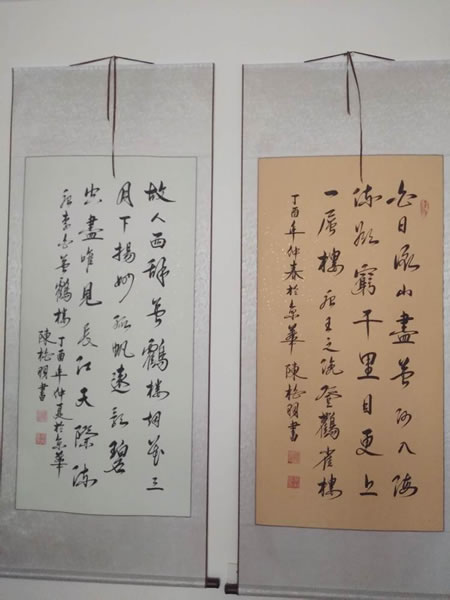 白日依山盡黃河入海
流欲窮千里目更上
一層樓 唐王之渙登鸛雀樓
丁酉年仲春於京華 陳明書
故人西辭黃鶴樓烟花三
月下揚州孤帆遠影碧
空盡唯見長江天際流
唐李白黃鶴樓丁酉年仲夏於京華
陳明書